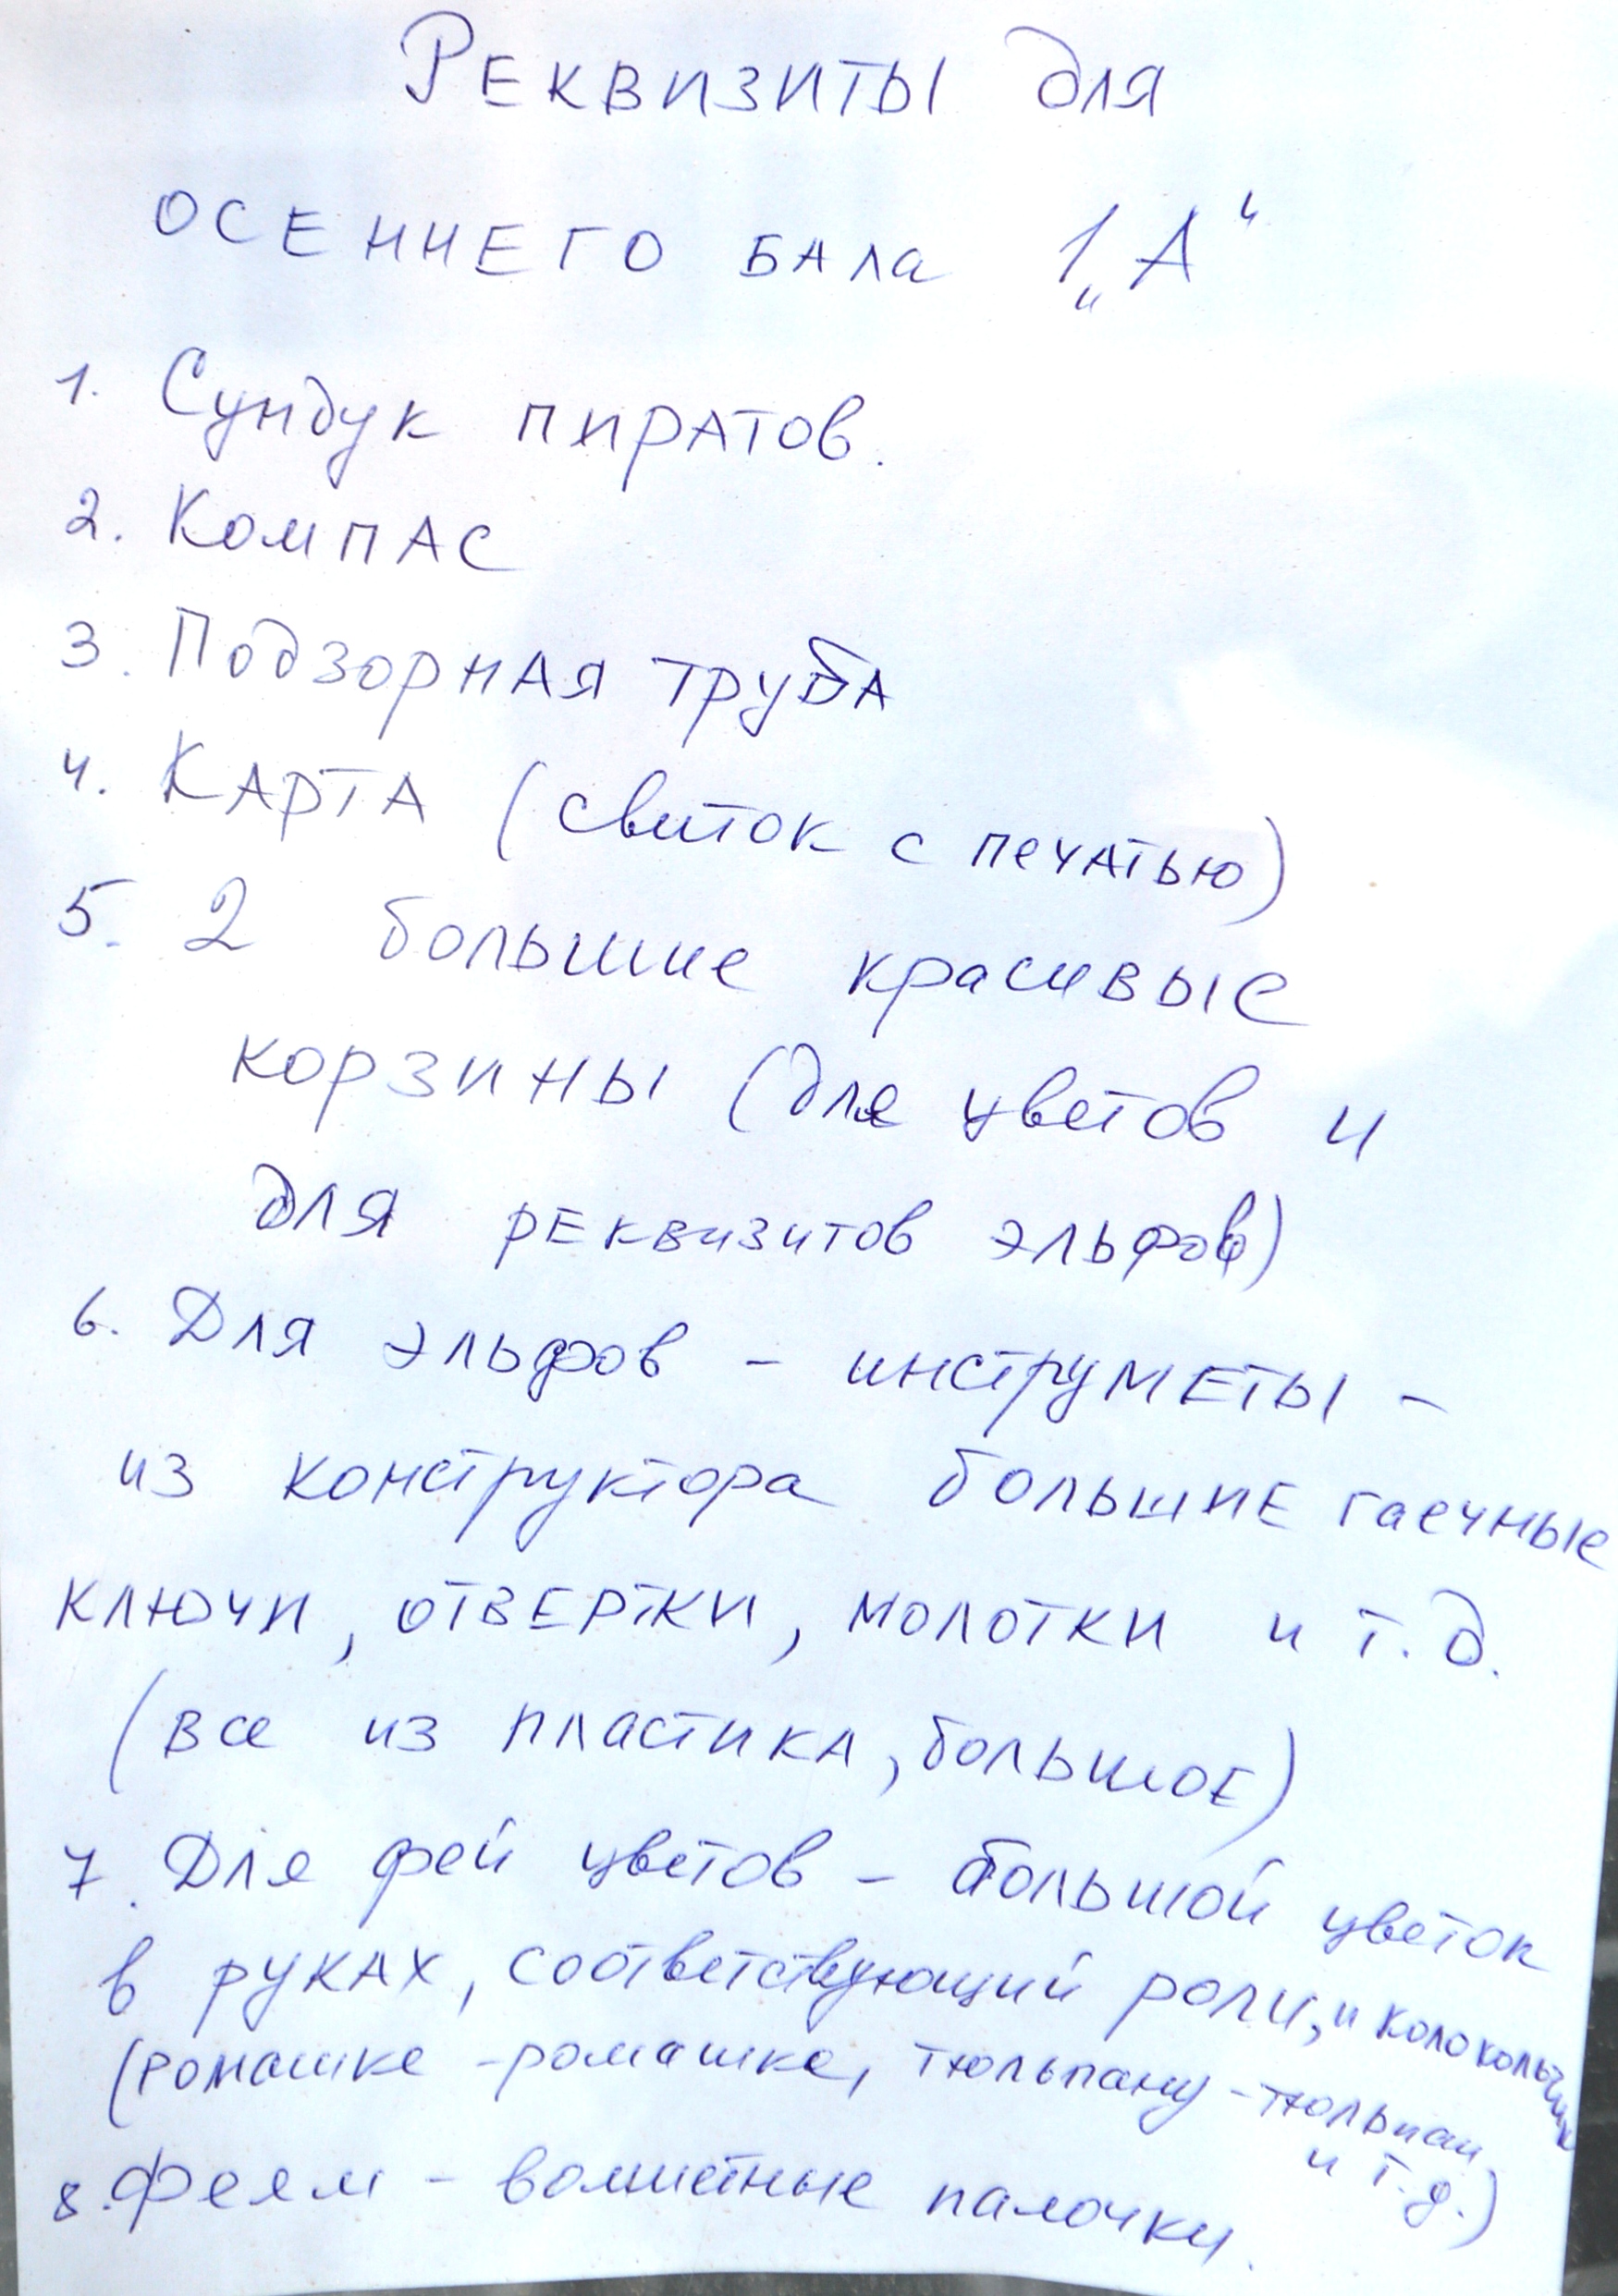 Реквизиты для
осеннего бала 1 „А“
1. Сундук пиратов.
2. Компас
3. Подзорная труба
4. Карта (свиток с печатью)
5. 2 большие красивые
корзины (для цветов и
для реквизитов эльфов)
6. Для эльфов - инструметы -
из конструктора большие гаечные
ключи, отвертки, молотки и т.д.
(все из пластика, большое)
7. Для фей цветов - большой цветок
в руках, соответствующий роли, и колокольчик
(ромашке - ромашка, тюльпану - тюльпан
и т.д.)
8. Феям - волшебные палочки.